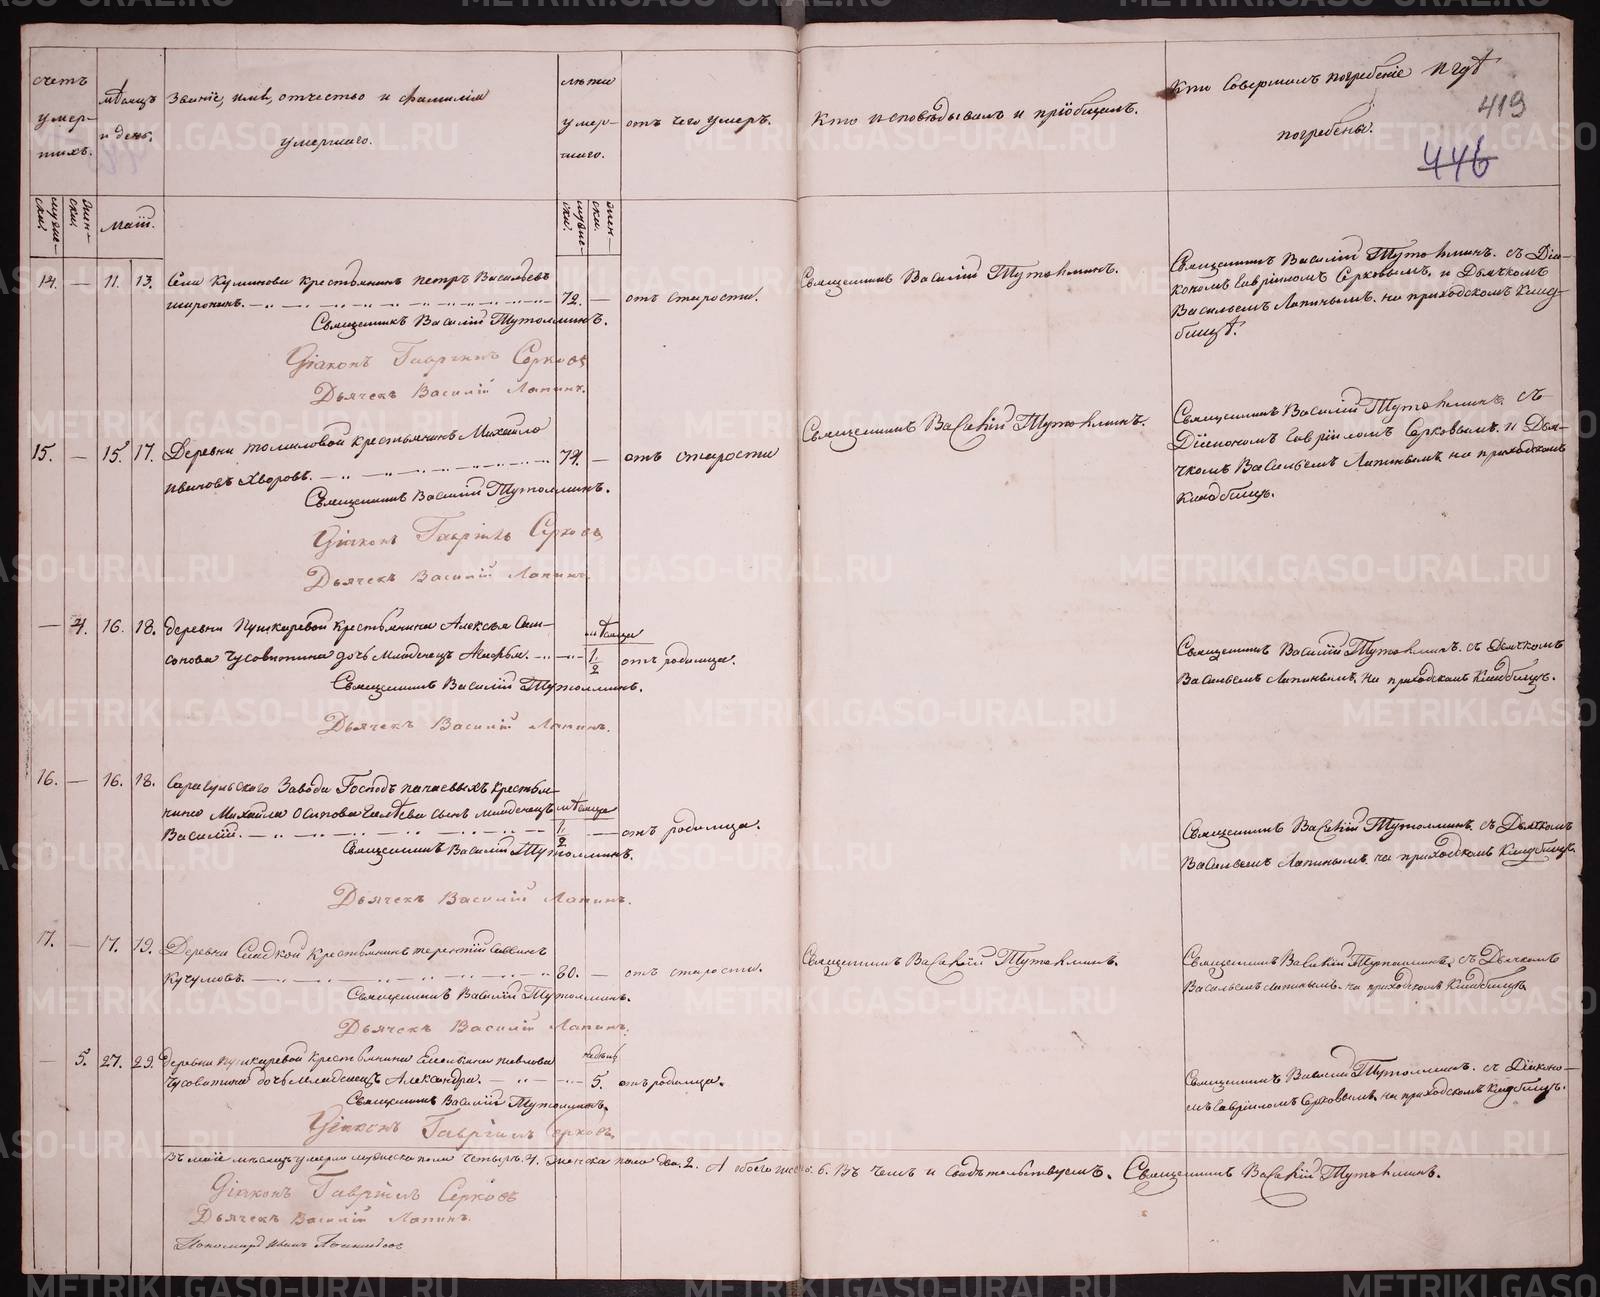 счетъ умер- шихъ.
мѣсяцъ и день.
Званіе, имя, отчество и фамилія
умершаго.
лѣта умер- шаго.
отъ чего умеръ.
Кто исповѣдывалъ и пріобщалъ.
Кто совершалъ погребеніе и гдѣ
погребены.
419
446
мужес- ски.
жен- ски.
Маій.
мужес- ски.
жен- ски.
14. — 11. 13. Села Куликова крестьянинъ Петръ Васильевъ
72. — отъ старости.
Священникъ Василій Тутолминъ.
Діаконъ Гавріилъ Серковъ
Дьячекъ Василій Лапинъ.
Священникъ Василій Тутолминъ.
Священникъ Василій Тутолминъ. съ Діа-
кономъ Гавріиломъ Серковымъ. и Дьячкомъ
Васильемъ Лапинымъ. на приходскомъ клад-
бищѣ.
15. — 15. 17. Деревни Томиловой крестьянинъ Михайло
Ивановъ Хворовъ. 74. — отъ старости
Священникъ Василій Тутолминъ.
Діаконъ Гавріилъ Серковъ
Дьячекъ Василій Лапинъ.
Священникъ Василій Тутолминъ.
Священникъ Василій Тутолминъ съ
Діакономъ Гавріиломъ Серковымъ. и Дья-
чкомъ Васильемъ Лапинымъ на приходскомъ
кладбищѣ.
— 4. 16. 18. Деревни Пушкаревой крестьянина Алексѣя
Чусовитина дочь младенецъ
мѣсяца
1/2 отъ родимца.
Священникъ Василій Тутолминъ.
Дьячекъ Василій Лапинъ.
Священникъ Василій Тутолминъ. съ Дьячкомъ
Васильемъ Лапинымъ. на приходскомъ кладбищѣ.
16. — 16. 18. Сарагульского Завода Господъ крестья-
нина Михайла Осипова сынъ младенецъ мѣсяца
Василій. 1/2 — отъ родимца.
Священникъ Василій Тутолминъ.
Дьячекъ Василій Лапинъ.
Священникъ Василій Тутолминъ. съ Дьячкомъ
Васильемъ Лапинымъ. на приходскомъ кладбищѣ.
17. — 17. 19. Деревни крестьянинъ Терентій Саввинъ
Кучумовъ. 80. — отъ старости.
Священникъ Василій Тутолминъ.
Дьячекъ Василій Лапинъ.
Священникъ Василій Тутолминъ.
Священникъ Василій Тутолминъ. съ Дьячкомъ
Васильемъ Лапинымъ. на приходскомъ кладбищѣ
— 5. 27. 29. Деревни Пушкаревой крестьянина Емельяна Павлова
Чусовитина дочь младенецъ Александра.
недѣль
5. отъ родимца.
Священникъ Василій Тутолминъ.
Діаконъ Гавріилъ Серковъ.
Священникъ Василій Тутолминъ. съ Діакено-
мъ Гавріиломъ Серковымъ. на приходскомъ кладбищѣ.
Въ маіѣ мѣсяцѣ умерло мужеска пола четыре. 4. женска пола два. 2. А обоего 6. Въ чемъ и свидѣтельствуемъ. Священникъ Василій Тутолминъ.
Діаконъ Гавріилъ Серковъ
Дьячекъ Василій Лапинъ.
Пономарь Иванъ
METRIKI.GASO-URAL.RU